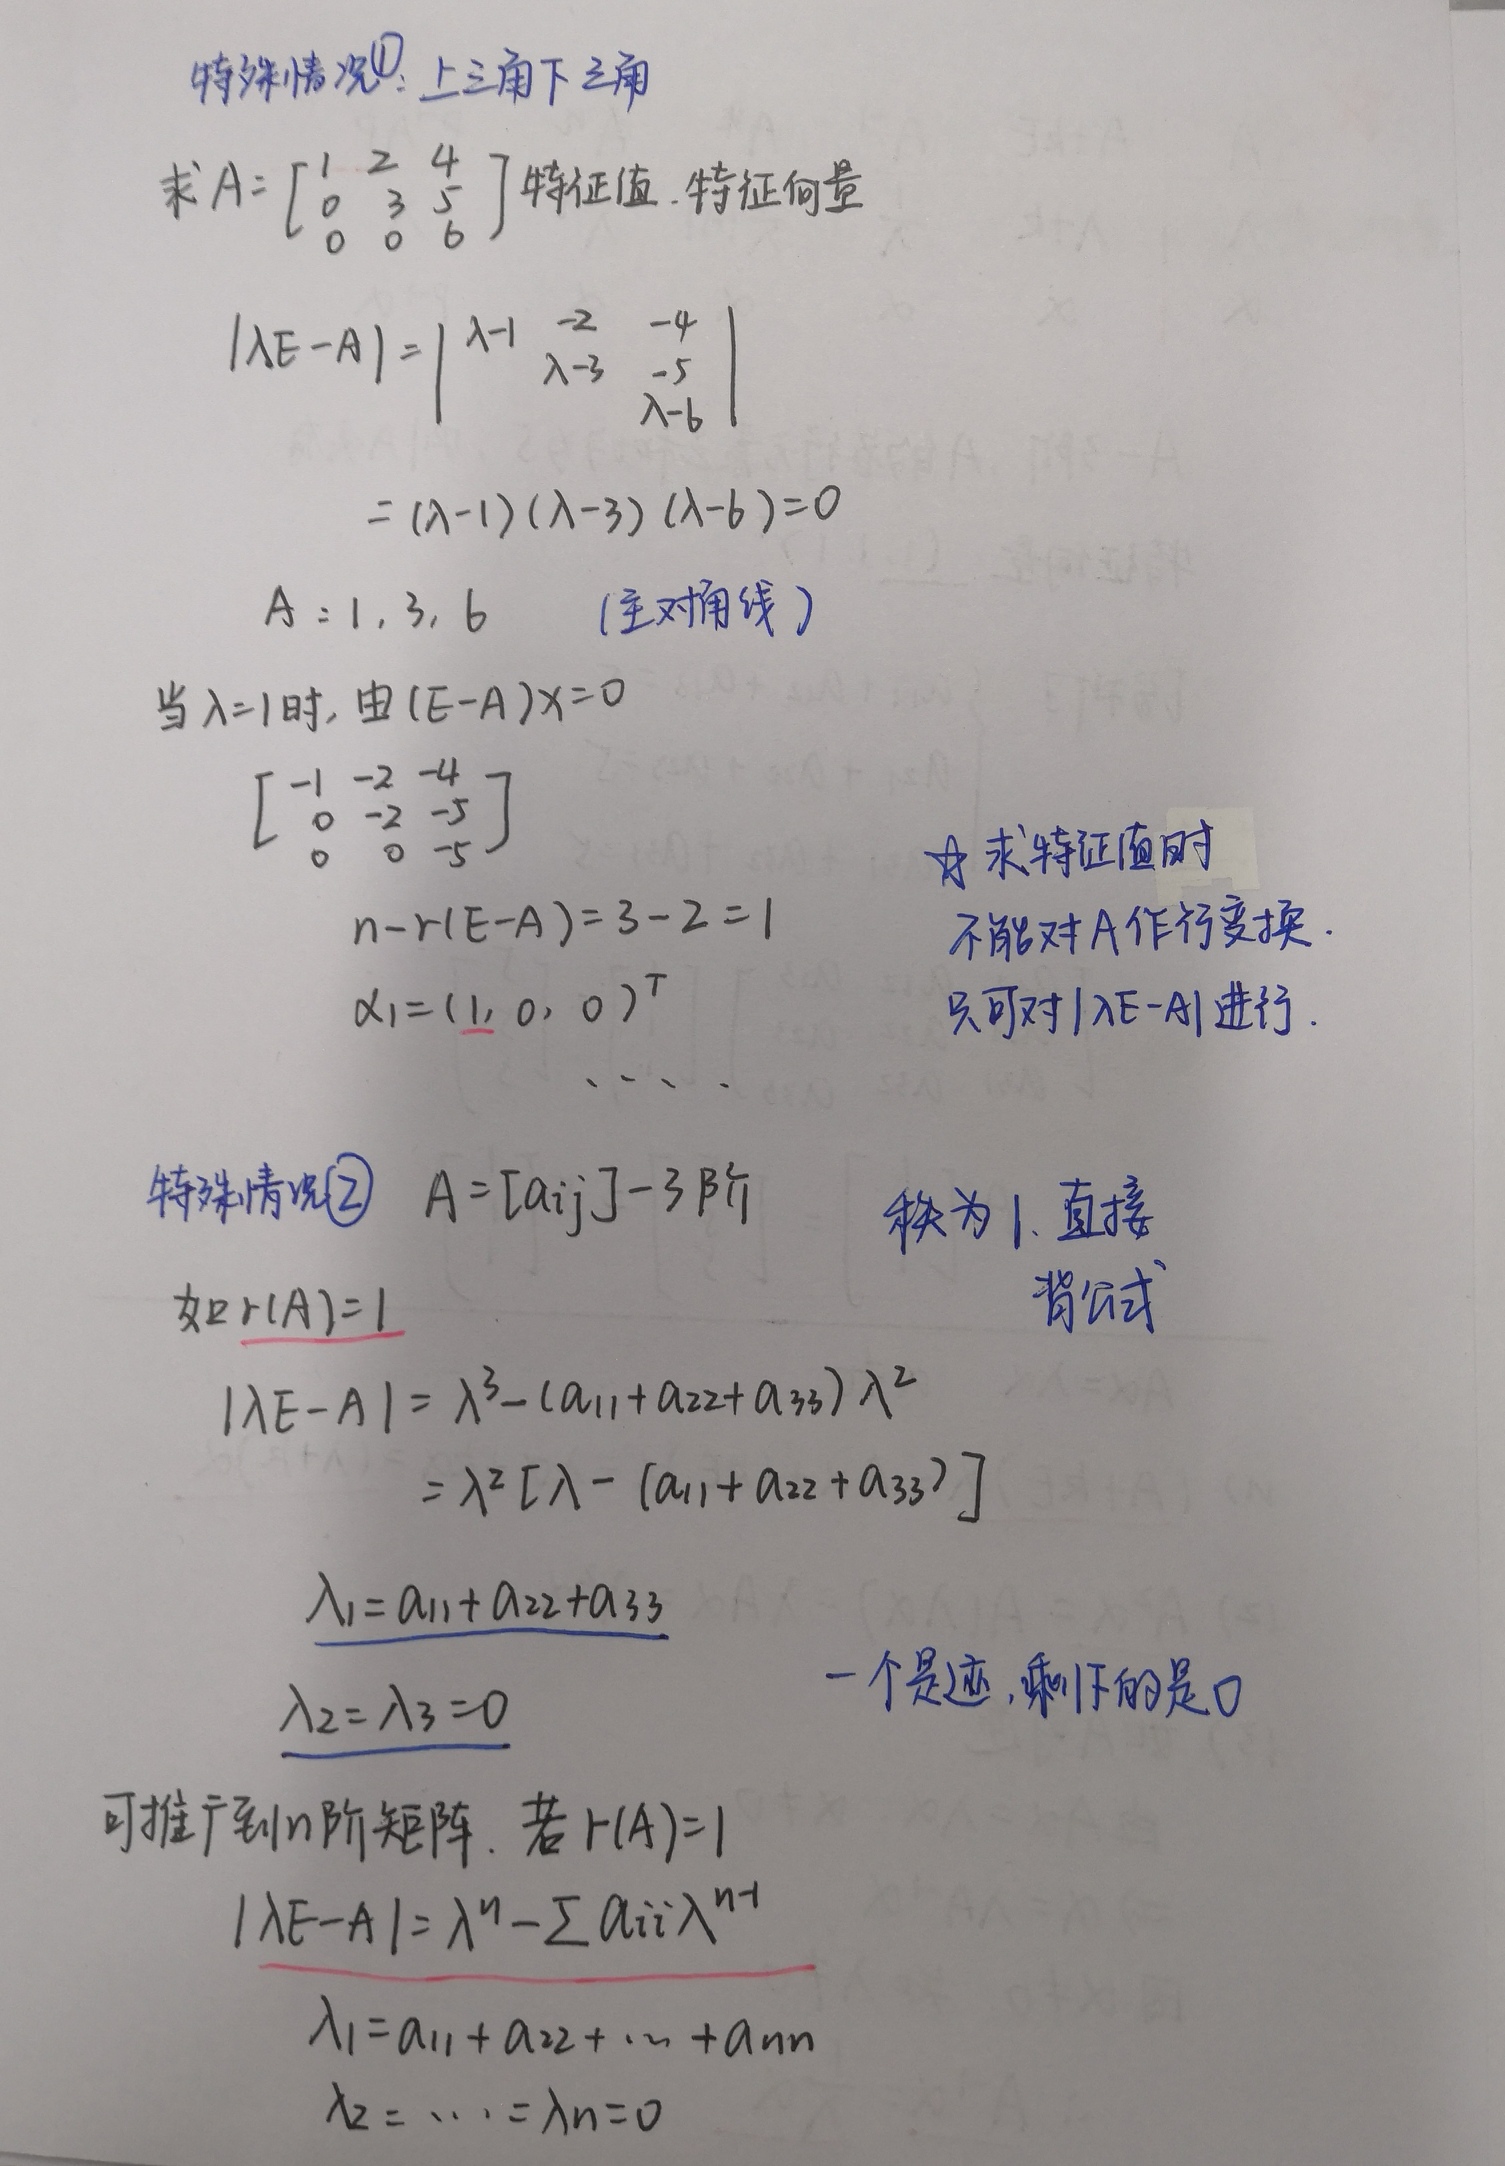 特殊情况①：上三角下三角
求A=[1 2 4
0 3 5
0 0 6]特征值.特征向量
|λE-A|=|λ-1 -2 -4
λ-3 -5
λ-6|
=(λ-1)(λ-3)(λ-6)=0
A:1,3,6 (主对角线)
当λ=1时,由(E-A)x=0
[-1 -2 -4
0 -2 -5
0 0 -5]
☆求特征值时
n-r(E-A)=3-2=1
不能对A作行变换.
α1=(1,0,0)ᵀ
只可对|λE-A|进行.
....
特殊情况② A=[aij]-3阶
秩为1、直接
背公式
如r(A)=1
|λE-A|=λ³-(a11+a22+a33)λ²
=λ²[λ-(a11+a22+a33)]
λ1=a11+a22+a33
一个是迹,剩下的是0
λ2=λ3=0
可推广到n阶矩阵.若r(A)=1
|λE-A|=λⁿ-∑aiiλⁿ⁻¹
λ1=a11+a22+...+ann
λ2=...=λn=0